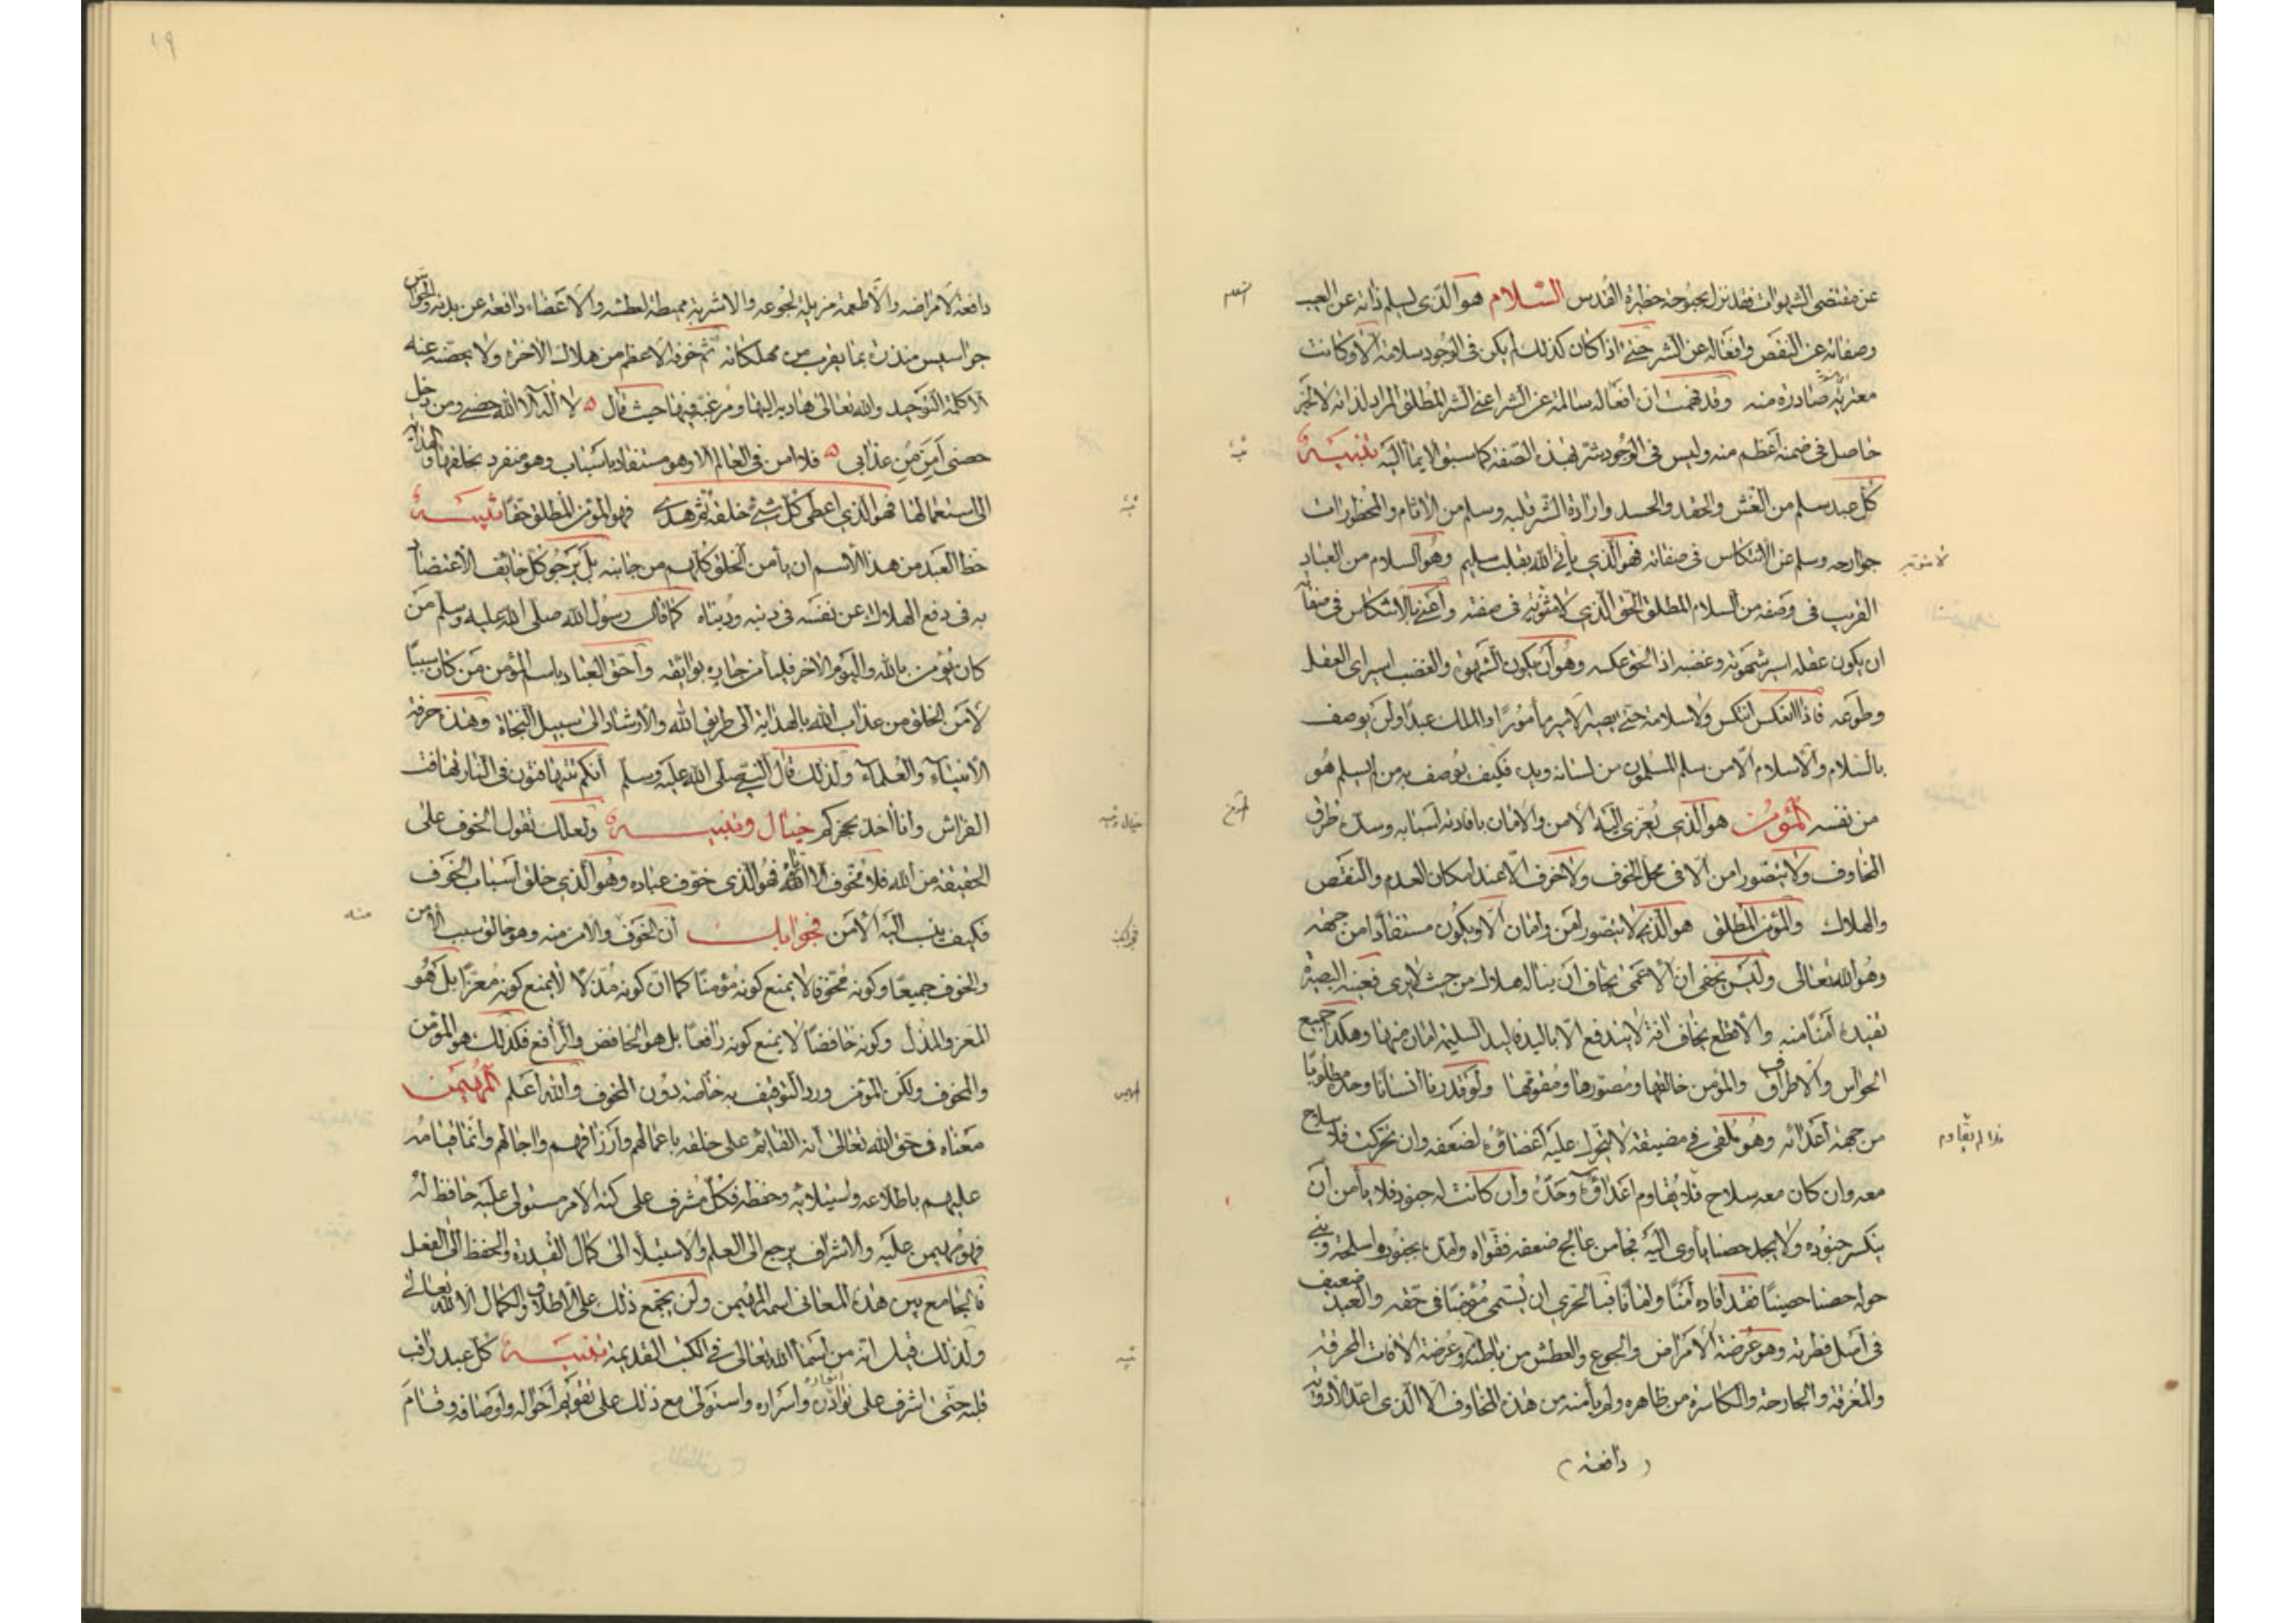 عن مقتضى الشهوات فقد نزل بحبوحة حظيرة القدس السّلام هو الّذى يسلم ذاته عن العيب
وصفاته عن النقص وافعاله عن الشر حتى اذا كان كذلك لم يكن فى الوجود سلامة الا وكانت
معزية اليه صادرة منه وقد فهمت ان افعاله سالمة عن الشر اعنى الشر المطلق المراد لذاته لا لخير
حاصل فى ضمنه اعظم منه وليس فى الوجود شر بهذه الصفة كما سبق الايماء اليه تنبيه
كل عبد سلم من الغش والحقد والحسد وارادة الشر قلبه وسلم من الاثام والمحظورات
جوارحه وسلم من الانتكاس فى صفاته فهو الذى يأتى الله بقلب سليم وهو السلام من العباد
القريب فى وصفه من السلام المطلق الحق الذى لا مثنوية فى صفته واعنى بالانتكاس فى صفاته
ان يكون عقله اسير شهوته وغضبه اذ الحق عكسه وهو ان يكون الشهوة والغضب اسيرى العقل
وطوعه فاذا انعكس انتكس ولا سلامة حتى يصير الامير مأمورا والملك عبدا ولن يوصف
بالسّلام والاسلام الّا من سلم المسلمون من لسانه ويده فكيف يوصف به من لم يسلم هو
من نفسه المؤمن هو الذى يعزى اليه الامن والامان بافادته اسبابه وسده طرق
المخاوف ولا يتصور امن الّا فى محل الخوف ولا خوف الّا عند امكان العدم والنقص
والهلاك والمؤمن المطلق هو الذى لا يتصور امن وامان الّا ويكون مستفادا من جهته
وهو الله تعالى وليس يخفى ان الاعمى يخاف ان يناله هلاك من حيث لا يرى فعينه البصيرة
تفيده امنا منه والاقطع يخاف افة لا يندفع الّا باليد فاليد السليمة امان منها وهكذا جميع
الحواس والاطراف والمؤمن خالقها ومصورها ومقومها ولو قدرنا انسانا وحده مطلوبا
من جهة اعدائه وهو ملقى فى مضيقة لا يتحرك عليه اعضاؤه لضعفه وان تحركت فلا سلاح
معه وان كان معه سلاح فلا يقاوم اعداؤه وحده وان كانت له جنود فلا يأمن ان
ينكسر جنوده ولا يجد حصنا يأوى اليه فجأ من عالج ضعفه فقواه وامده بجنود واسلحة وبنى
حوله حصنا حصينا فقد افاده امنا وامانا فبالحرى ان يسمى مؤمنا فى حقه والعبد ضعيف
فى اصل فطرته وهو عرضة الامراض والجوع والعطش من باطنه وعرضة الافات المحرقة
والمغرقة والجارحة والكاسرة من ظاهره ولم يأمنه من هذه المخاوف الا الذى اعد الادوية
(دافعة)
السلام
تنبيه
لا مثنوية
المؤمن
فلا يقاوم
١٩
دافعة لامراضه والاطعمة مزيلة لجوعه والاشربة مميطة لعطشه والاعضاء دافعة عن بدنه والحواس
جواسيس منذرة بما يقرب من مهلكاته ثم خوفه الاعظم من هلاك الاخرة ولا يحصنه عنه
الا كلمة التوحيد والله تعالى هاديه اليها ومرغبه فيها حيث قال لا اله الا الله حصنى ومن دخل
حصنى امن من عذابى فلا امن فى العالم الا وهو مستفاد باسباب وهو منفرد بخلقها والهداية
الى استعمالها فهو الذى اعطى كل شئ خلقه ثم هدى فهو المؤمن المطلق حقا تنبيه
حظ العبد من هذا الاسم ان يأمن الخلق كلهم من جانبه بل يرجو كل خائف الاعتضاد
به فى دفع الهلاك عن نفسه فى دينه ودنياه كما قال رسول الله صلى الله عليه وسلم من
كان يؤمن بالله واليوم الاخر فليأمن جاره بوائقه واحق العباد باسم المؤمن من كان سببا
لامن الخلق من عذاب الله بالهداية الى طريق الله والارشاد الى سبيل النجاة وهذه حرفة
الانبياء والعلماء ولذلك قال النبى صلى الله عليه وسلم انكم تتهافتون فى النار تهافت
الفراش وانا اخذ بحجزكم خيال وتنبيه ولعلك تقول الخوف على
الحقيقة من الله فلا مخوف الا الله فهو الذى خوف عباده وهو الذى خلق اسباب الخوف
فكيف ينسب اليه الامن فجوابك ان الخوف والامن منه وهو خالق سبب الامن
والخوف جميعا وكونه مخوفا لا يمنع كونه مؤمنا كما ان كونه مذلا لا يمنع كونه معزا بل هو
المعز والمذل وكونه خافضا لا يمنع كونه رافعا بل هو الخافض والرافع فكذلك هو المؤمن
والمخوف ولكن المؤمن ورد التوقيف به خاصة دون المخوف والله اعلم المهيمن
معناه فى حق الله تعالى انه القائم على خلقه باعمالهم وارزاقهم واجالهم وانما قيامه
عليهم باطلاعه واستيلائه وحفظه فكل مشرف على كنه الامر مستولى عليه حافظ له
فهو مهيمن عليه والاشراف يرجع الى العلم والاستيلاء الى كمال القدرة والحفظ الى الفعل
فالجامع بين هذه المعانى اسمه المهيمن ولن يجتمع ذلك على الاطلاق والكمال الا لله تعالى
ولذلك قيل انه من اسماء الله تعالى فى الكتب القديمة تنبيه كل عبد راقب
قلبه حتى اشرف على اغواره واسراره واستولى مع ذلك على تقويم احواله واوصافه وقام
تنبيه
خيال وتنبيه
منه
فجوابك
المهيمن
تنبيه